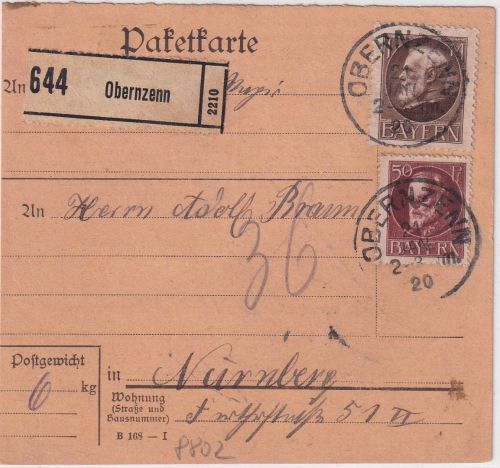 Paketkarte
An 644 Obernzenn 2210
OBERNZENN
20
BAYERN
50 Pf
BAYERN
OBERNZENN
20
An Herrn Adolf Braun
36
Postgewicht
6 kg
in Nürnberg
Wohnung
(Straße und
Hausnummer)
Fürtherstraße 51 II
B 168 — I
8802